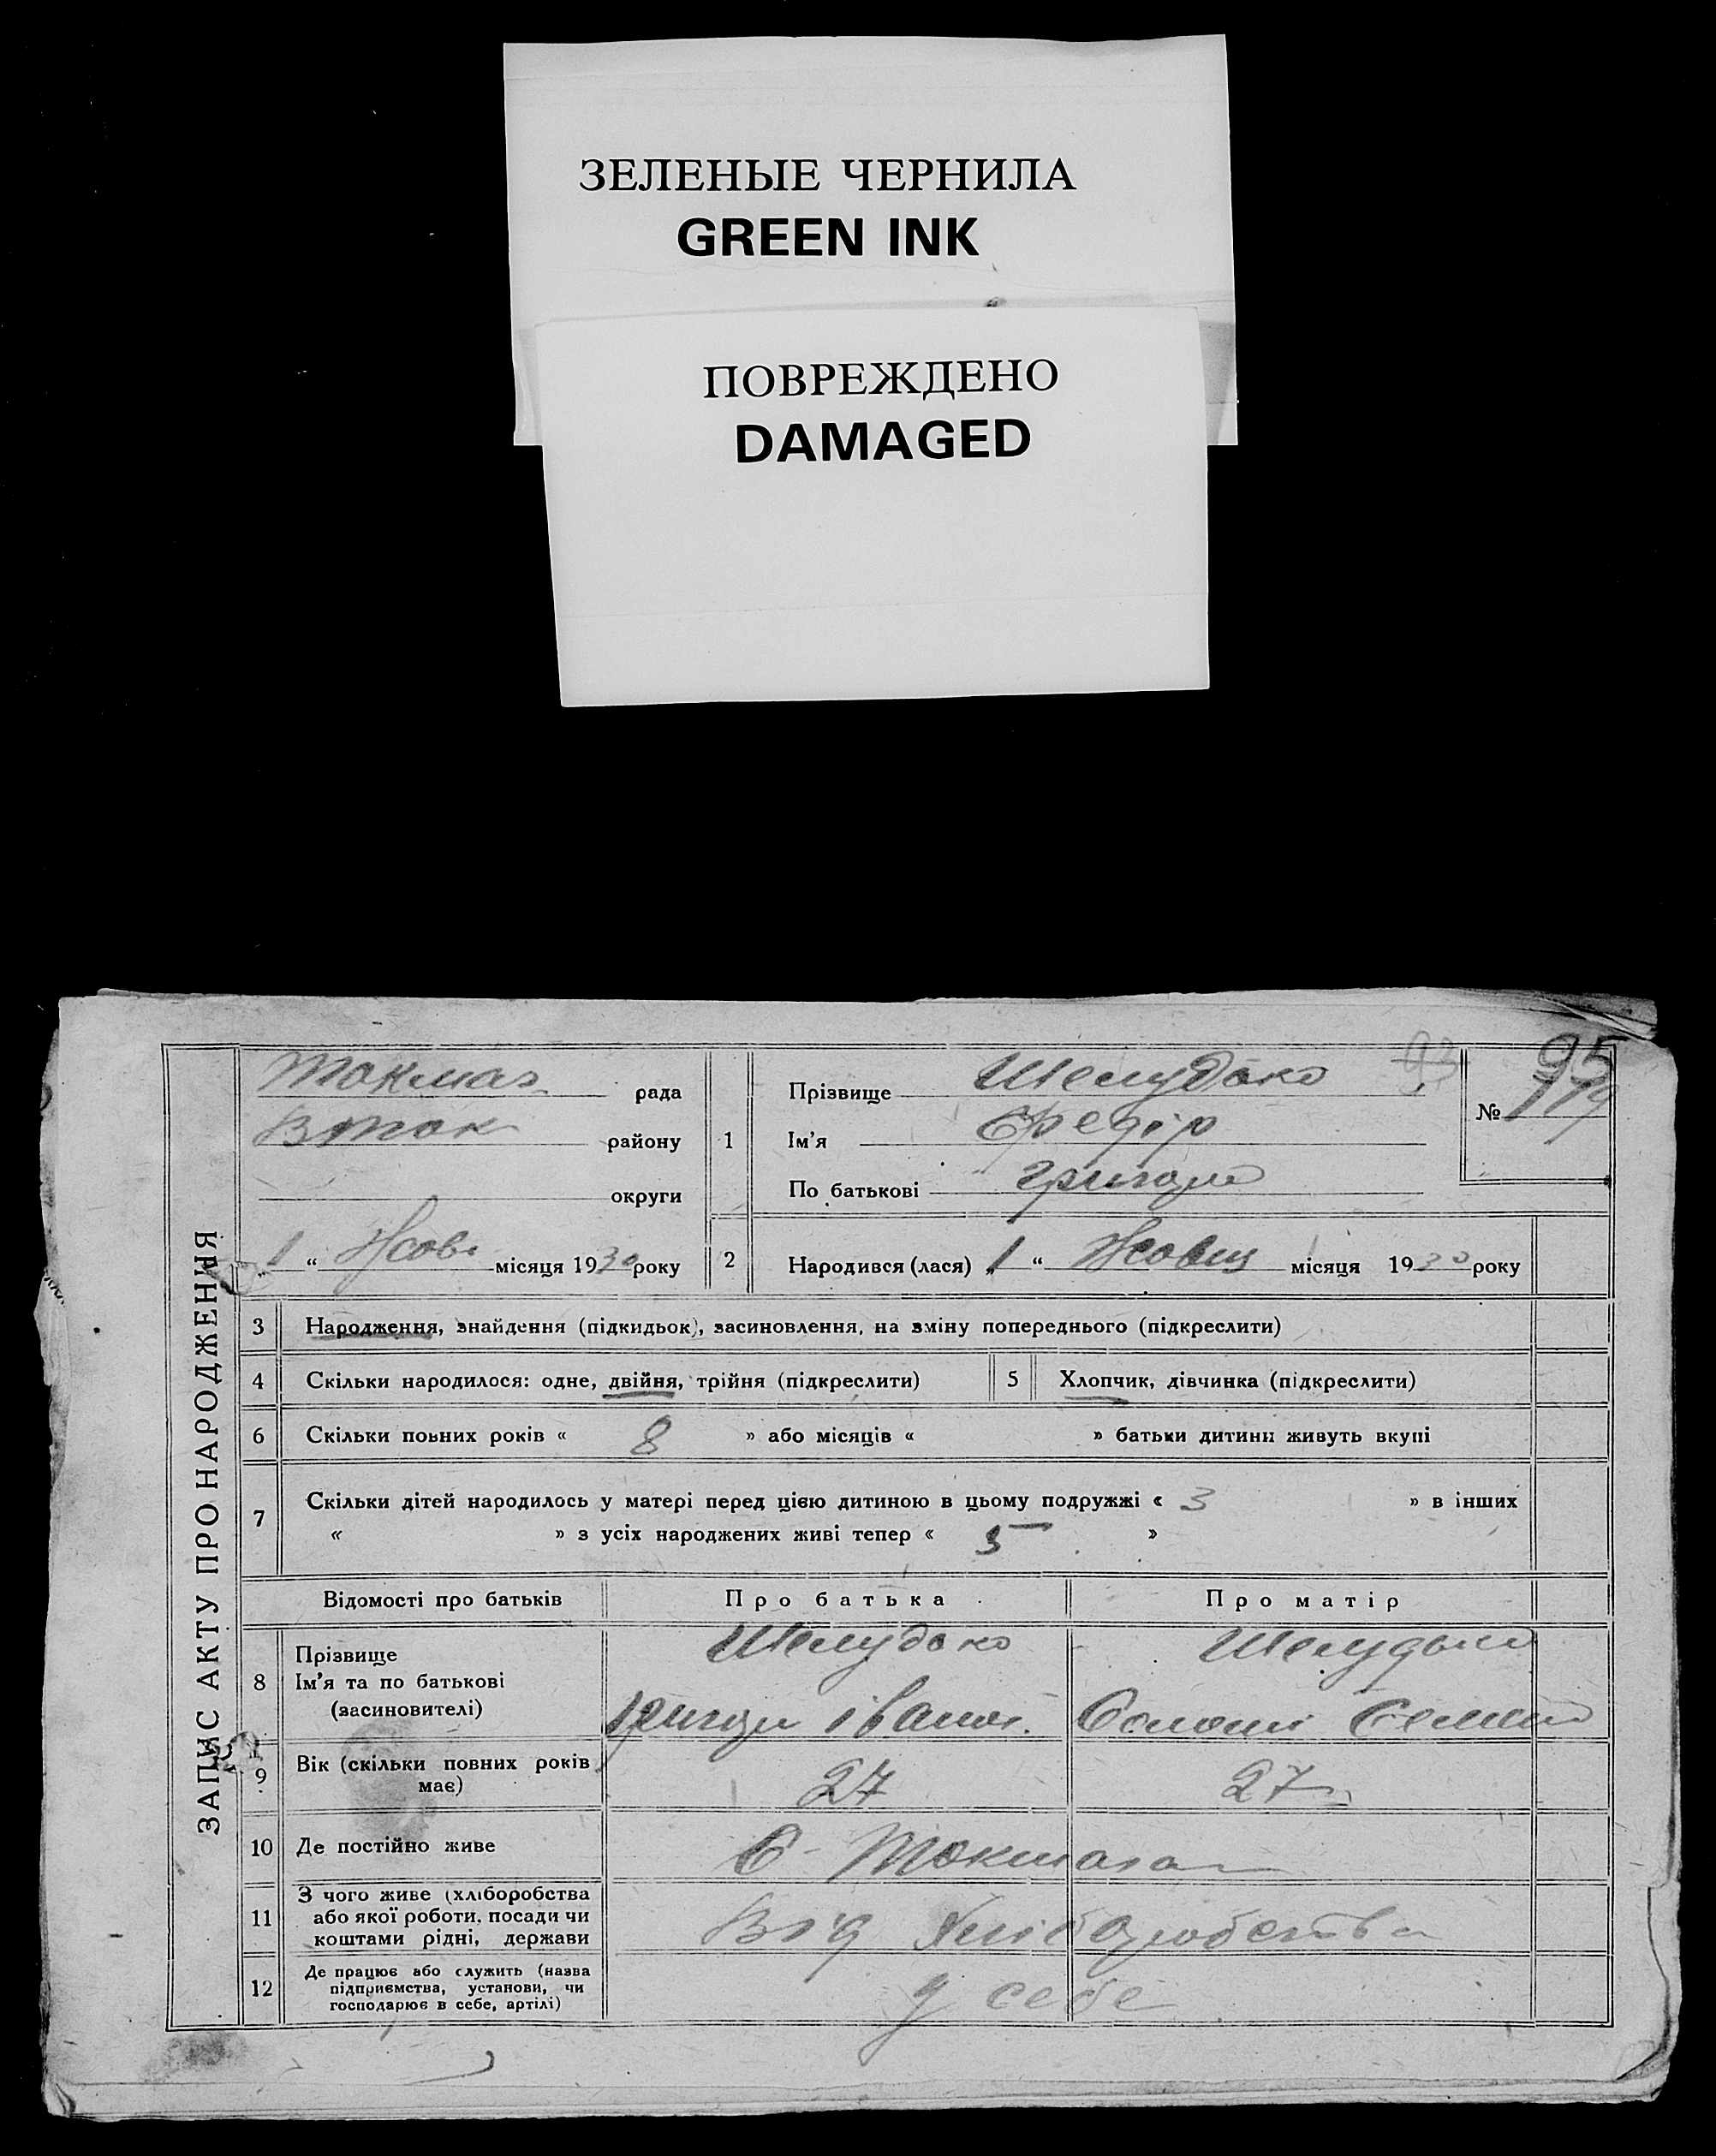 ЗЕЛЕНЫЕ ЧЕРНИЛА
GREEN INK
ПОВРЕЖДЕНО
DAMAGED
ЗАПИС АКТУ ПРО НАРОДЖЕННЯ
Токмаз рада
В Ток району
округи
„1“ Жов місяця 1930 року
1
Прізвище Шелудько
Ім'я Федір
По батькові Григор
93
95
№
2
Народився (лася) „1“ Жовт місяця 1930 року
3 Народження, знайдення (підкидьок), засиновлення, на зміну попереднього (підкреслити)
4 Скільки народилося: одне, двійня, трійня (підкреслити)
5 Хлопчик, дівчинка (підкреслити)
6 Скільки повних років « 8 » або місяців « » батьки дитини живуть вкупі
7 Скільки дітей народилось у матері перед цією дитиною в цьому подружжі « 3 » в інших
« » з усіх народжених живі тепер « 5 »
Відомості про батьків Про батька Про матір
8 Прізвище Шелудько
Ім'я та по батькові
(засиновителі) Григор Іванов.
9 Вік (скільки повних років має) 27 27
10 Де постійно живе С Токмак
11 З чого живе (хліборобства
або якої роботи, посади чи
коштами рідні, держави Від Хліборобства
12 Де працює або служить (назва
підприємства, установи, чи
господарює в себе, артілі) у себе